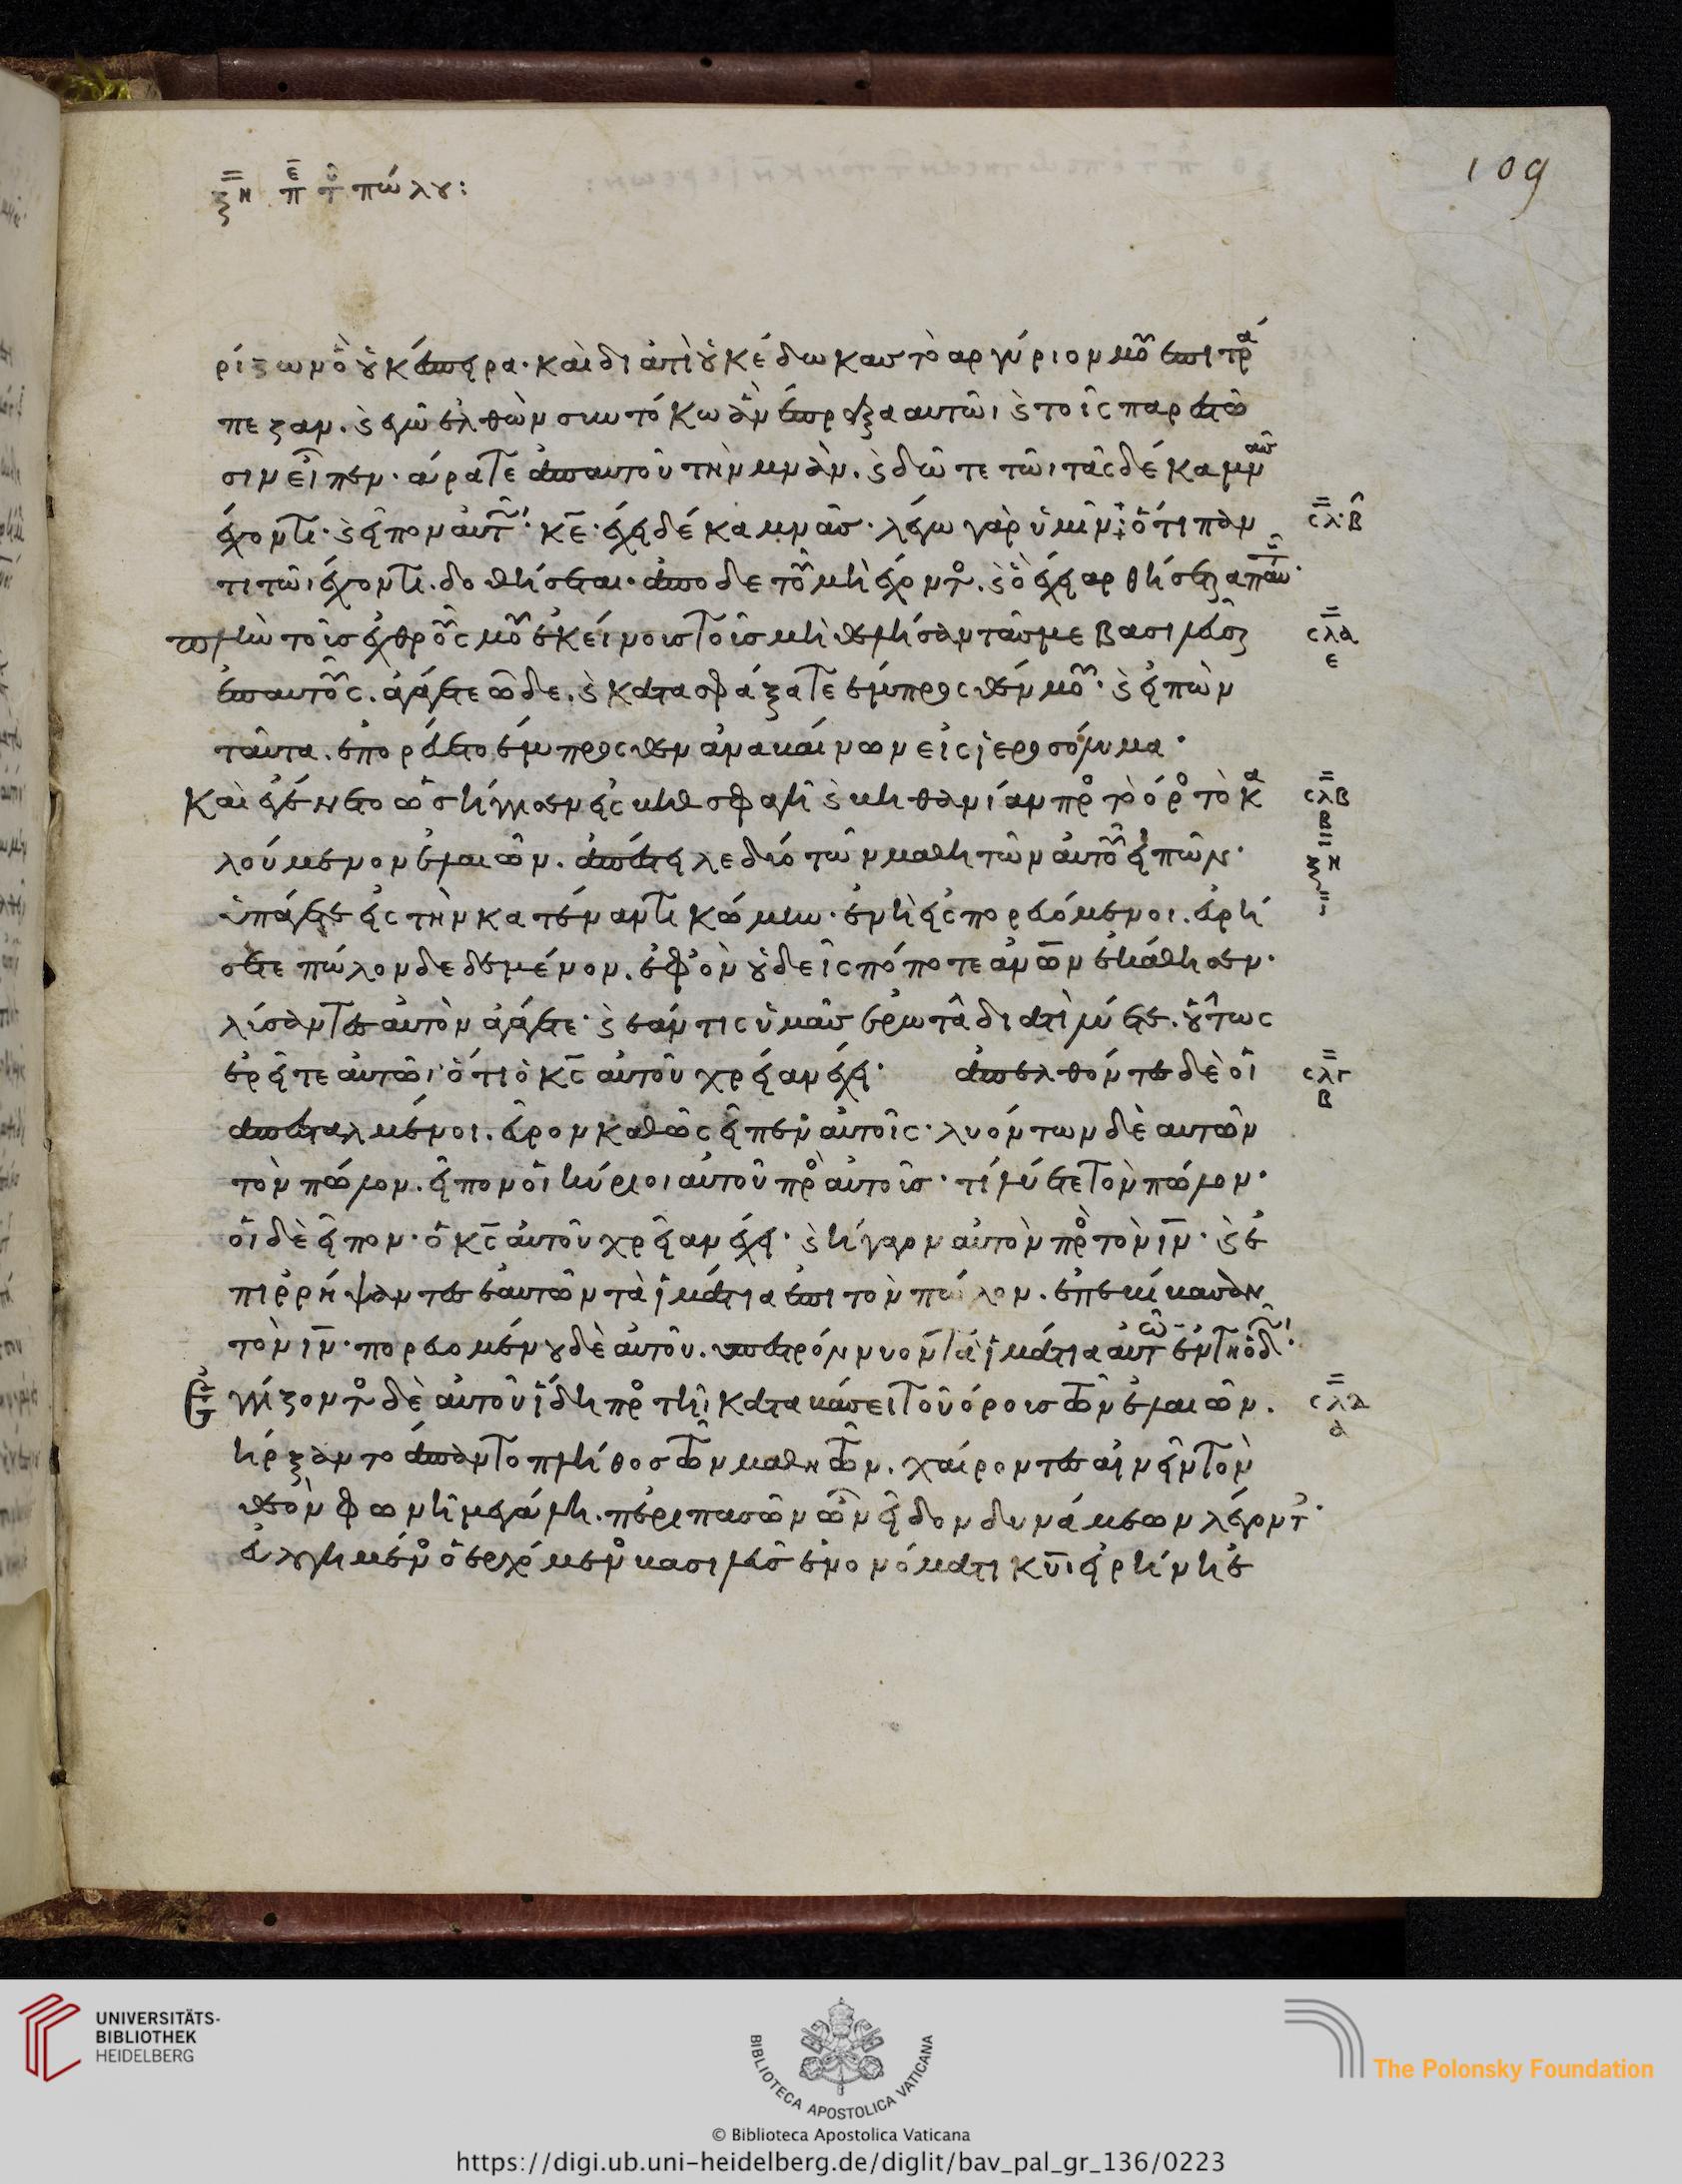 ξη πε του πώλου:
109
ρίζων ὃ οὐκ ἔσπειρα· καὶ διατί οὐκ ἔδωκας τὸ αργύριον μου ἐπι τρά
πεζαν. καὶ ἐγὼ ἐλθὼν συν τόκω ἂν ἔπραξα αυτῶι καὶ τοῖς παρεστῶ
σιν εἶπεν· άρατε ἀπ αυτοῦ τὴν μνᾶν. καὶ δότε τῶι τὰς δέκα μνᾶς
έχοντι· καὶ εἶπον αὐτῶ· κε· έχει δέκα μνᾶς· λέγω γὰρ ὑμῖν ὅτι παν
τι τῶι έχοντι. δοθήσεται· ἀπο δε τοῦ μὴ έχοντος. καὶ ὃ έχει αρθήσεται απ αὐτοῦ·
πλὴν τοὺς ἐχθρούς μου ἐκείνους τοὺς μὴ θελήσαντάς με βασιλεῦσαι
ἐπ αυτούς. ἀγάγετε ὧδε. καὶ κατασφάξατε έμπροσθέν μου· καὶ εἰπὼν
ταῦτα. ἐπορεύετο έμπροσθεν ἀναβαίνων εἰς ἱεροσόλυμα·
Καὶ ἐγένετο ὡς ήγγισεν εἰς βηθσφαγὴ καὶ βηθανίαν προς τὸ όρος τὸ κα
λούμενον ἐλαιῶν. ἀπέστειλε δύο τῶν μαθητῶν αὐτοῦ εἰπών·
ὑπάγετε εἰς τὴν κατέναντι κώμην· ἐν ἧ εἰσπορευόμενοι. εὑρή
σετε πώλον δεδεμένον. ἐφ ὃν οὐδεὶς πόποτε ανων ἐκάθησεν·
λύσαντες αὐτὸν ἀγάγετε· καὶ ἐάν τις ὑμᾶς ἐρωτᾶ διατί λύετε. οὕτως
ἐρεῖτε αυτῶ· ὅτι ὁ κς αὐτοῦ χρείαν έχει· ἀπελθόντες δὲ οἱ
ἀπεσταλμένοι. εὗρον καθὼς εἶπεν αὐτοῖς· λυόντων δὲ αυτῶν
τὸν πῶλον. εἶπον οἱ κύριοι αὐτοῦ προς αὐτούς· τί λύετε τὸν πῶλον·
οἱ δὲ εἶπον· ὁ κς αὐτοῦ χρείαν έχει· καὶ ήγαγον αυτὸν προς τὸν ιν· καὶ ἐ
πιρρήψαντες ἑαυτῶν τὰ ἱμάτια ἐπι τὸν πῶλον. ἐπεβίβασαν
τὸν ιν· πορευομένου δὲ αὐτοῦ. ὑπεστρόννυον τὰ ἱμάτια αὐτῶν ἐν τῆ ὁδῶ·
Εγγίζοντος δὲ αὐτοῦ ἤδη προς τῆ καταβάσει τοῦ όρους τῶν ἐλαιῶν.
ήρξαντο ἅπαν το πλήθος τῶν μαθητῶν. χαίροντες αἰνεῖν τὸν
θεὸν φωνῆ μεγάλη. περι πασῶν ὧν εἶδον δυνάμεων λέγοντες·
εὐλογημένος ὁ ἐρχόμενος βασιλεὺς ἐν ονόματι κυ· εἰρήνη ἐ
σλ·β
σλα
ε
σλβ
β
ξη
σλγ
β
σλδ
α
UNIVERSITÄTS-
BIBLIOTHEK
HEIDELBERG
BIBLIOTECA APOSTOLICA VATICANA
© Biblioteca Apostolica Vaticana
The Polonsky Foundation
https://digi.ub.uni-heidelberg.de/diglit/bav_pal_gr_136/0223